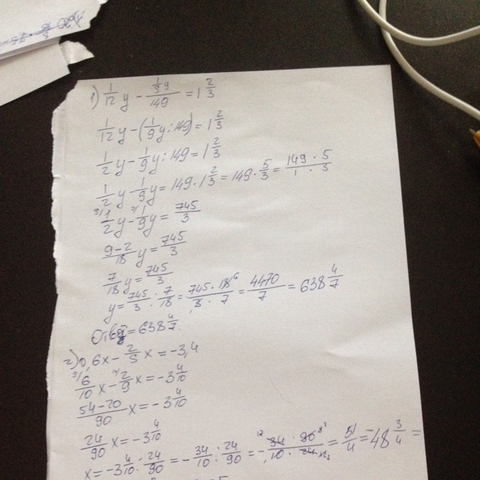 1) 1/12 y - (1/9 y)/149 = 1 2/3
1/12 y - (1/9 y : 149) = 1 2/3
1/2 y - 1/9 y : 149 = 1 2/3
1/2 y - 1/9 y = 149 · 1 2/3 = 149 · 5/3 = (149 · 5)/(1 · 3)
1/2 y - 1/9 y = 745/3
(9-2)/18 y = 745/3
7/18 y = 745/3
y = 745/3 : 7/18 = (745 · 18 6)/(3 · 7) = 4470/7 = 638 4/7
Ответ = 638 4/7
2) 0,6x - 2/9 x = -3,4
6/10 x - 2/9 x = -3 4/10
(54-20)/90 x = -3 4/10
24/90 x = -3 4/10
x = -3 4/10 : 24/90 = -34/10 : 24/90 = -(34 · 90)/(10 · 24) = 51/4 = -48 3/4 =